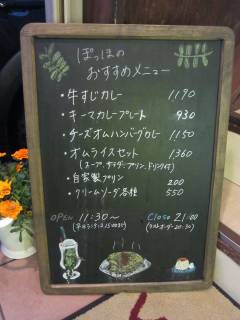 ぽっぽの
おすすめメニュー
・牛すじカレー 1190
・キーマカレープレート 930
・チーズオムハンバーグカレー 1150
・オムライスセット 1360
(スープ、サラダ、プリン、ドリンク付)
・自家製プリン 200
・クリームソーダ各種 550
OPEN 11:30～ Close 21:00
(平日ランチは15:00まで) (ラストオーダー20:30)